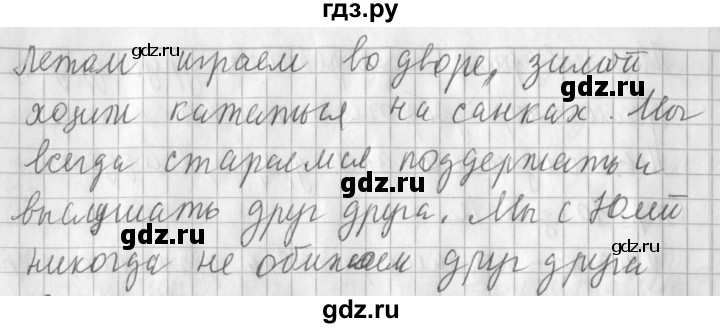 гдз.ру
gdz.ru gdz.ru
Летом играем во дворе, зимой
gdz.ru
ходим кататься на санках. Мы
всегда стараемся поддержать и
gdz.ru
выслушать друг друга. Мы с Юлей
gdz.ru gdz.ru
никогда не обижаем друг друга
gdz.ru